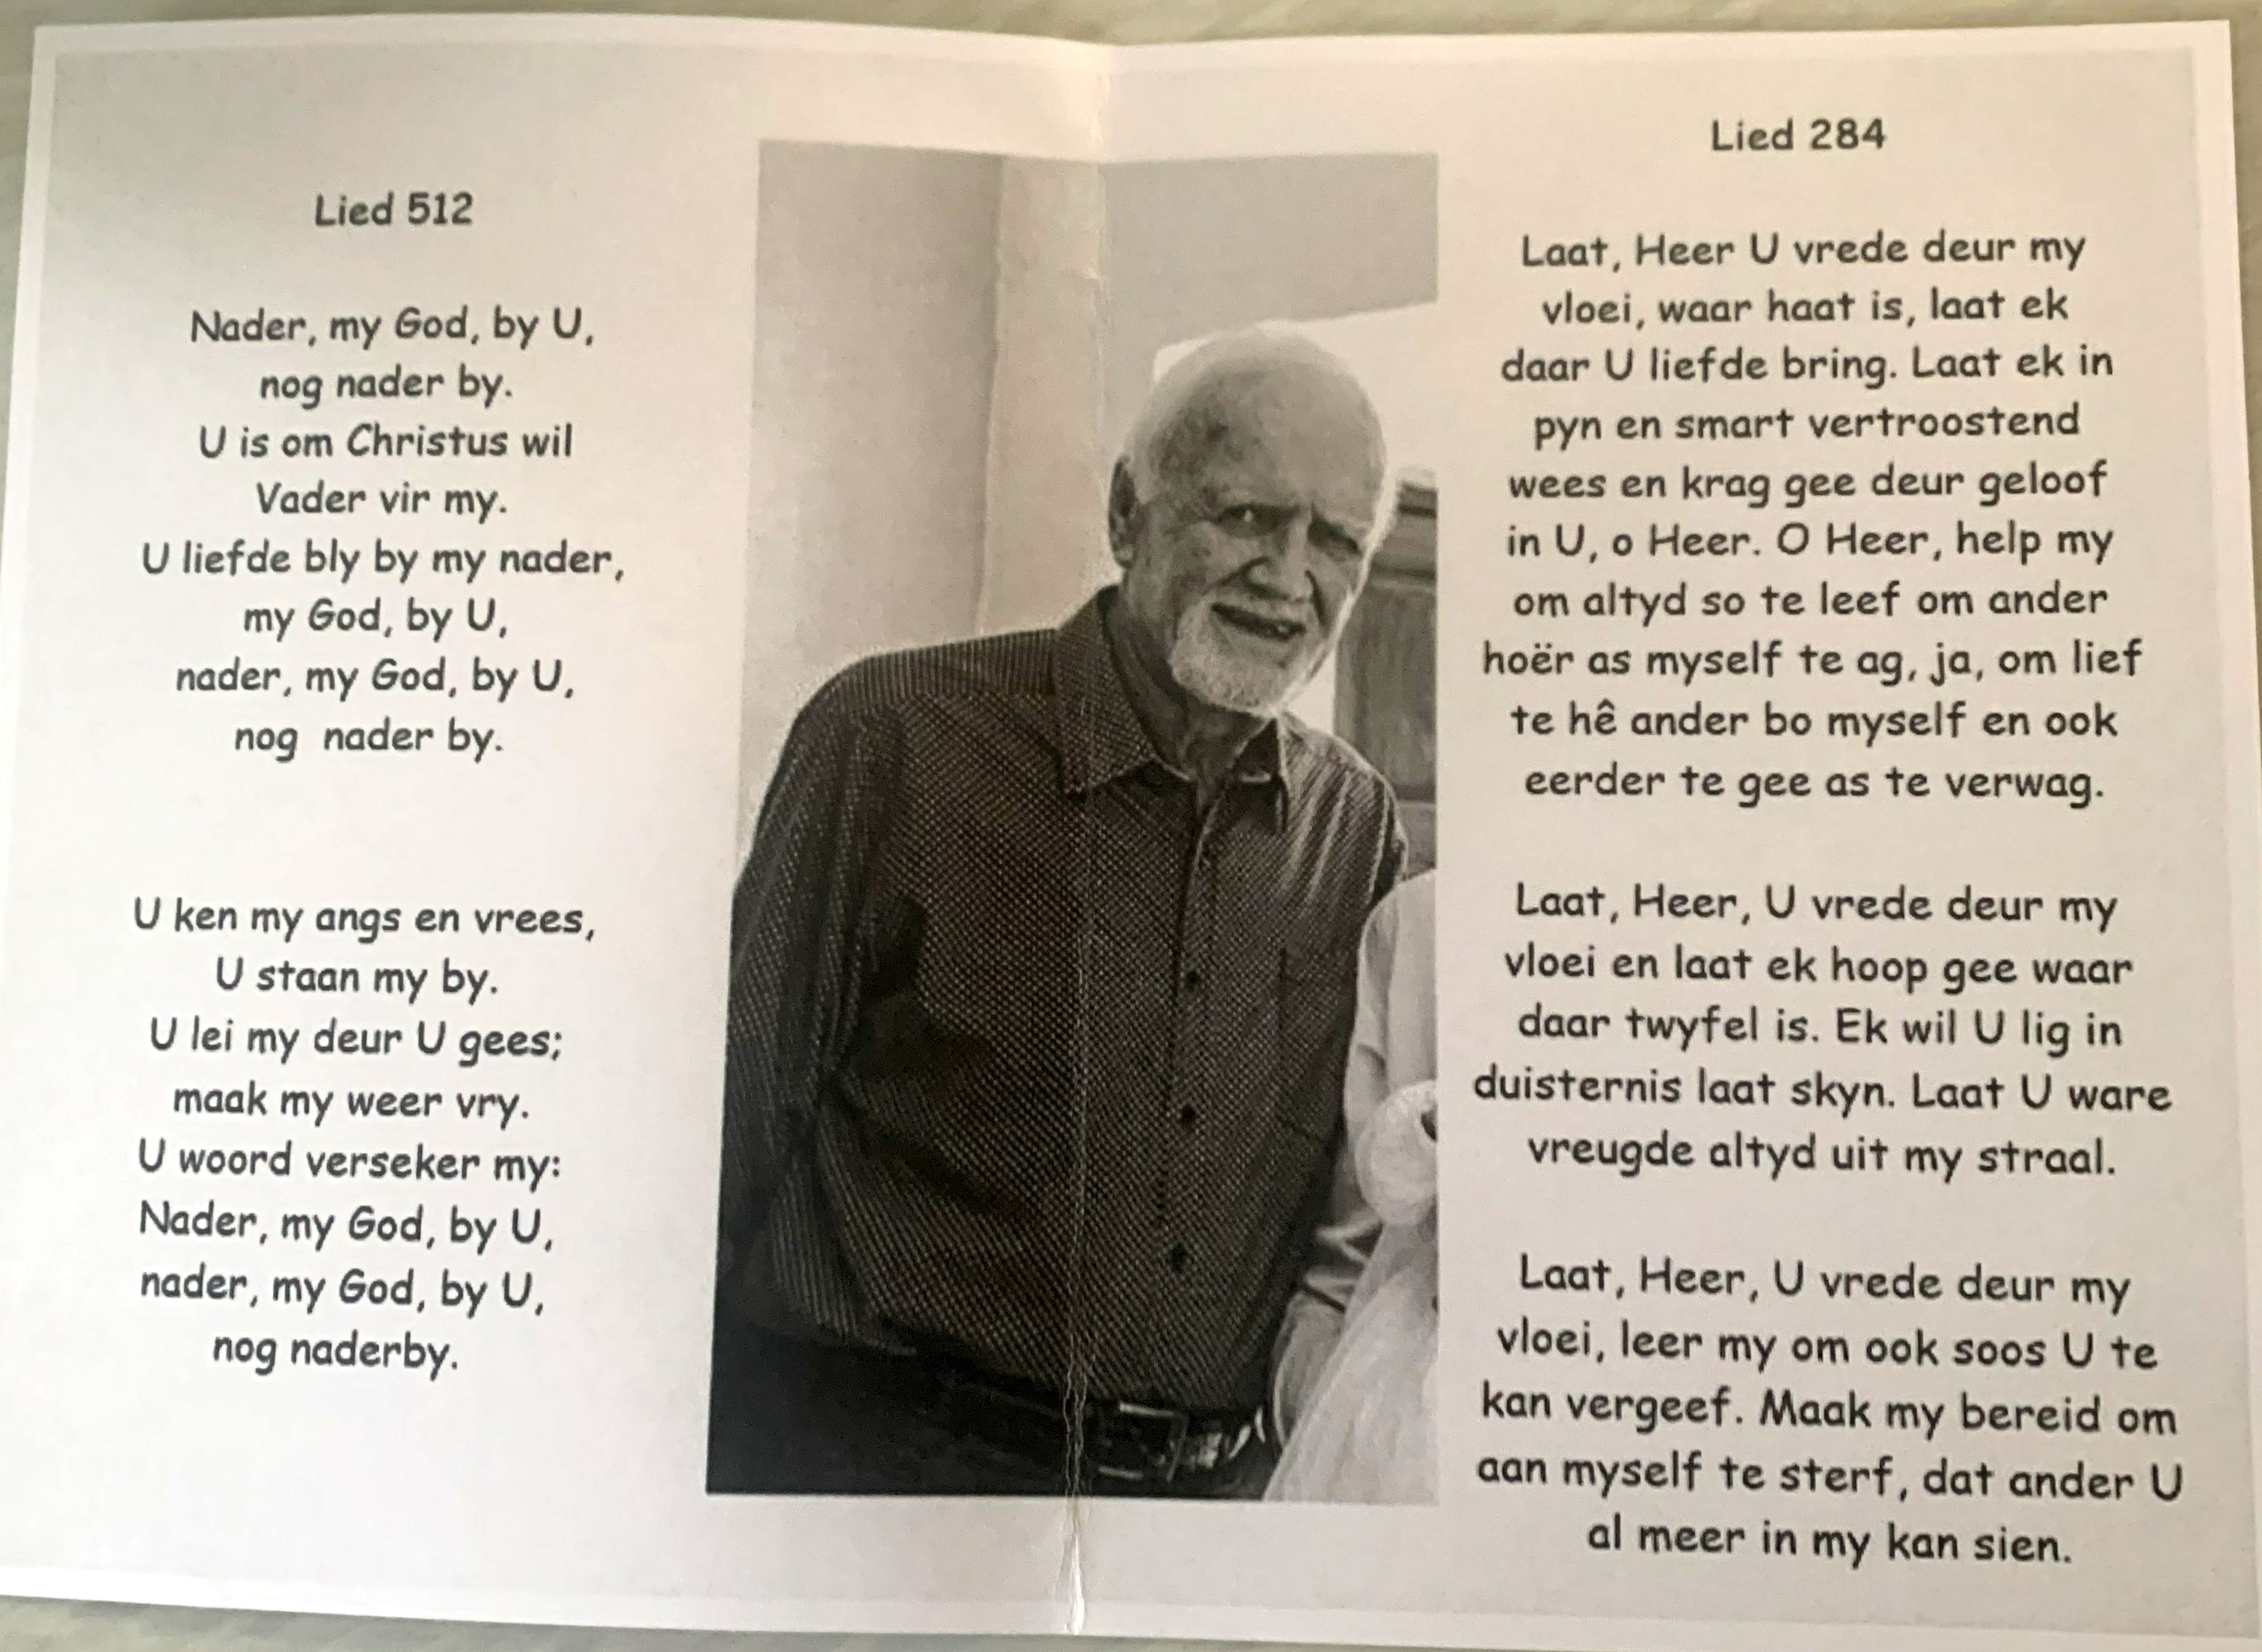 Lied 512
Nader, my God, by U,
nog nader by.
U is om Christus wil
Vader vir my.
U liefde bly by my nader,
my God, by U,
nader, my God, by U,
nog nader by.
U ken my angs en vrees,
U staan my by.
U lei my deur U gees;
maak my weer vry.
U woord verseker my:
Nader, my God, by U,
nader, my God, by U,
nog naderby.
Lied 284
Laat, Heer U vrede deur my
vloei, waar haat is, laat ek
daar U liefde bring. Laat ek in
pyn en smart vertroostend
wees en krag gee deur geloof
in U, o Heer. O Heer, help my
om altyd so te leef om ander
hoër as myself te ag, ja, om lief
te hê ander bo myself en ook
eerder te gee as te verwag.
Laat, Heer, U vrede deur my
vloei en laat ek hoop gee waar
daar twyfel is. Ek wil U lig in
duisternis laat skyn. Laat U ware
vreugde altyd uit my straal.
Laat, Heer, U vrede deur my
vloei, leer my om ook soos U te
kan vergeef. Maak my bereid om
aan myself te sterf, dat ander U
al meer in my kan sien.